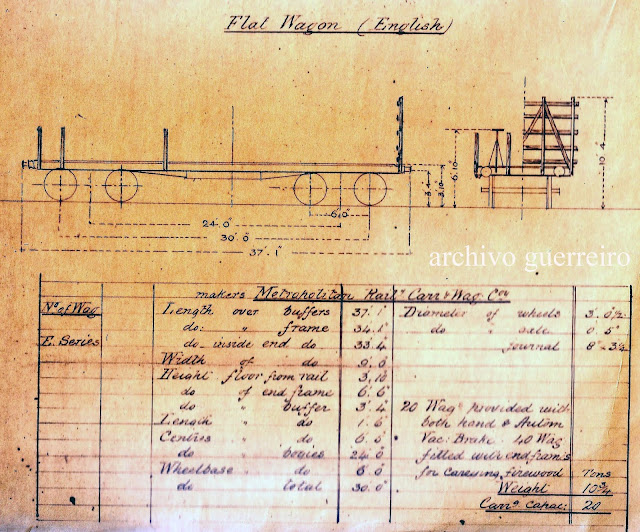 Flat Wagon (English)
10.4
6.10
3.4
3.10
6.0
24.0
30.0
37.1
archivo guerreiro
makers Metropolitan Rail^y Carr & Wag. C^oy
N^o of Wag
Length over buffers 37.1 Diameter of wheels 3.0½
do: " frame 34.1 do " axle 0.5
E. Series do inside end do 33.4 journal
Width of do
Height floor from rail 3,10
do of end frame 6.6
do " buffer 3.4 20 Wag^s provided with
Length " do 1.6 both hand & Autom
Centres " do Vac. Brake 40 Wag
do " bogies 24.0 fitted with end frames
Wheelbase " do 6.0 for carrying firewood Tons
do total 30.0 Weight 10¾
Carr^g Capac: 20